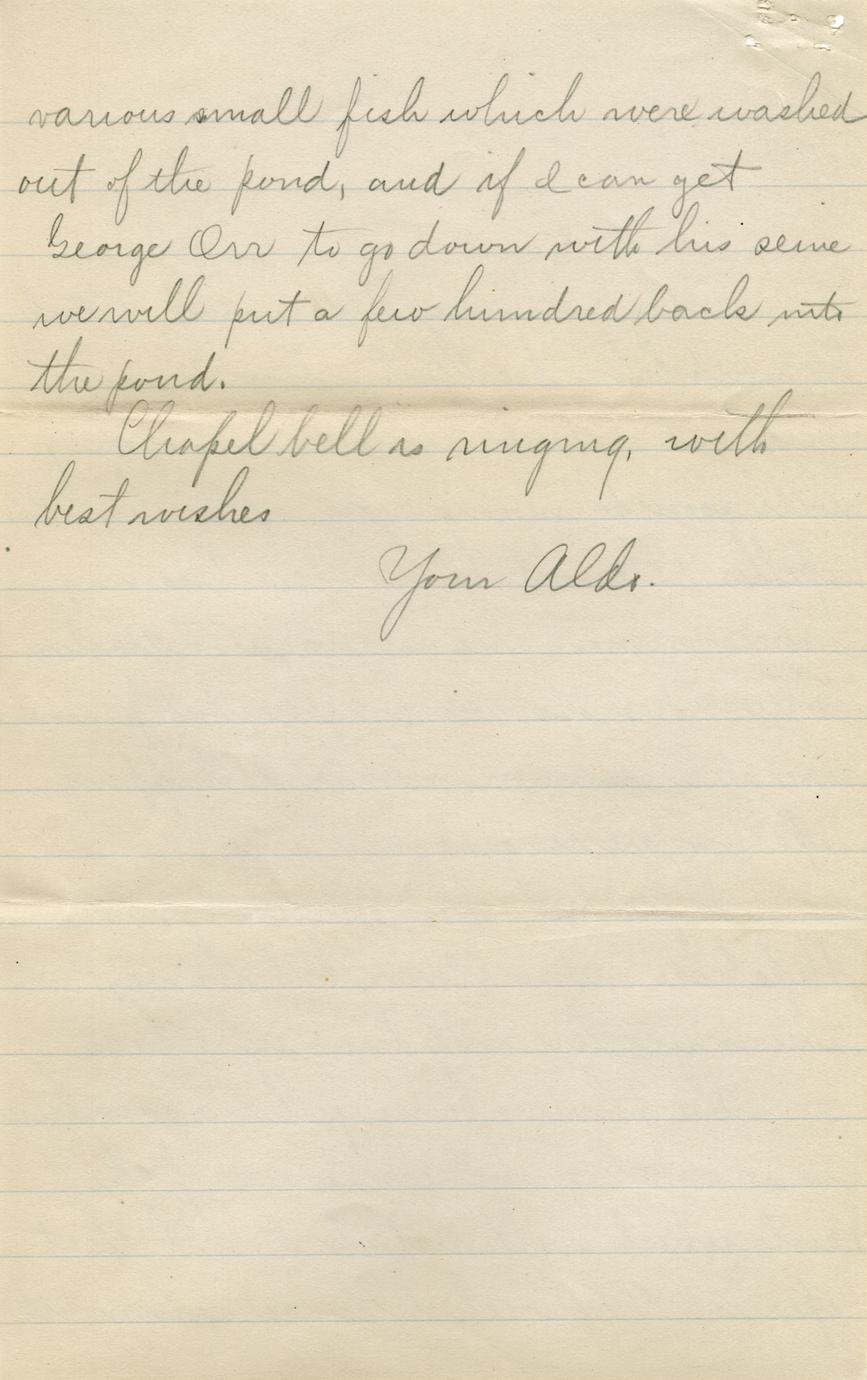 various small fish which were washed
out of the pond, and if I can get
George Orr to go down with his seine
we will put a few hundred back into
the pond.
Chapel bell is ringing, with
best wishes
Your Aldo.